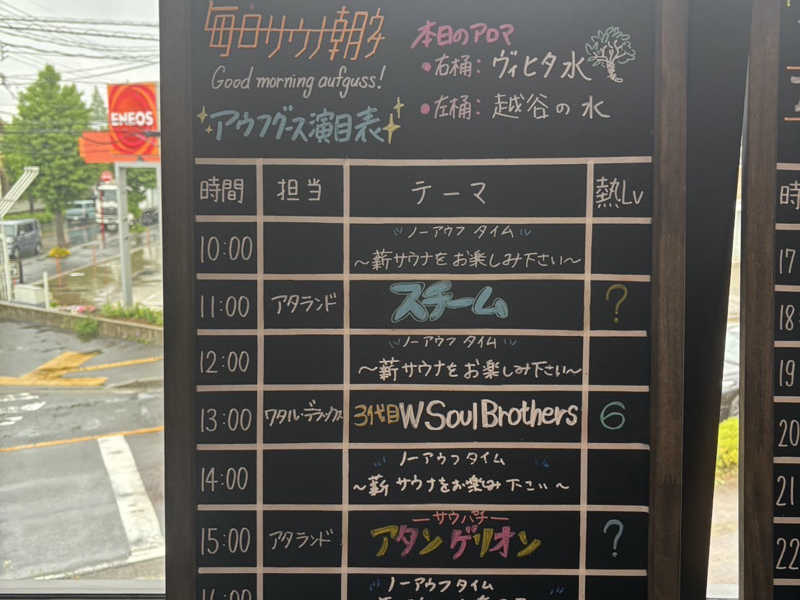 毎日サウナ朝夕
Good morning aufguss!
アウフグース演目表
本日のアロマ
•右桶: ヴィヒタ水
•左桶: 越谷の水
ENEOS
時間 担当 テーマ 熱Lv
10:00 ノーアウフタイム
〜薪サウナをお楽しみ下さい〜
11:00 アタランド スチーム ?
12:00 ノーアウフタイム
〜薪サウナをお楽しみ下さい〜
13:00 ワタル・デラックス 3代目W Soul Brothers 6
14:00 ノーアウフタイム
〜薪サウナをお楽しみ下さい〜
15:00 アタランド ーサウパチー
アタンゲリオン ?
ノーアウフタイム
時
17
18
19
20
21
22